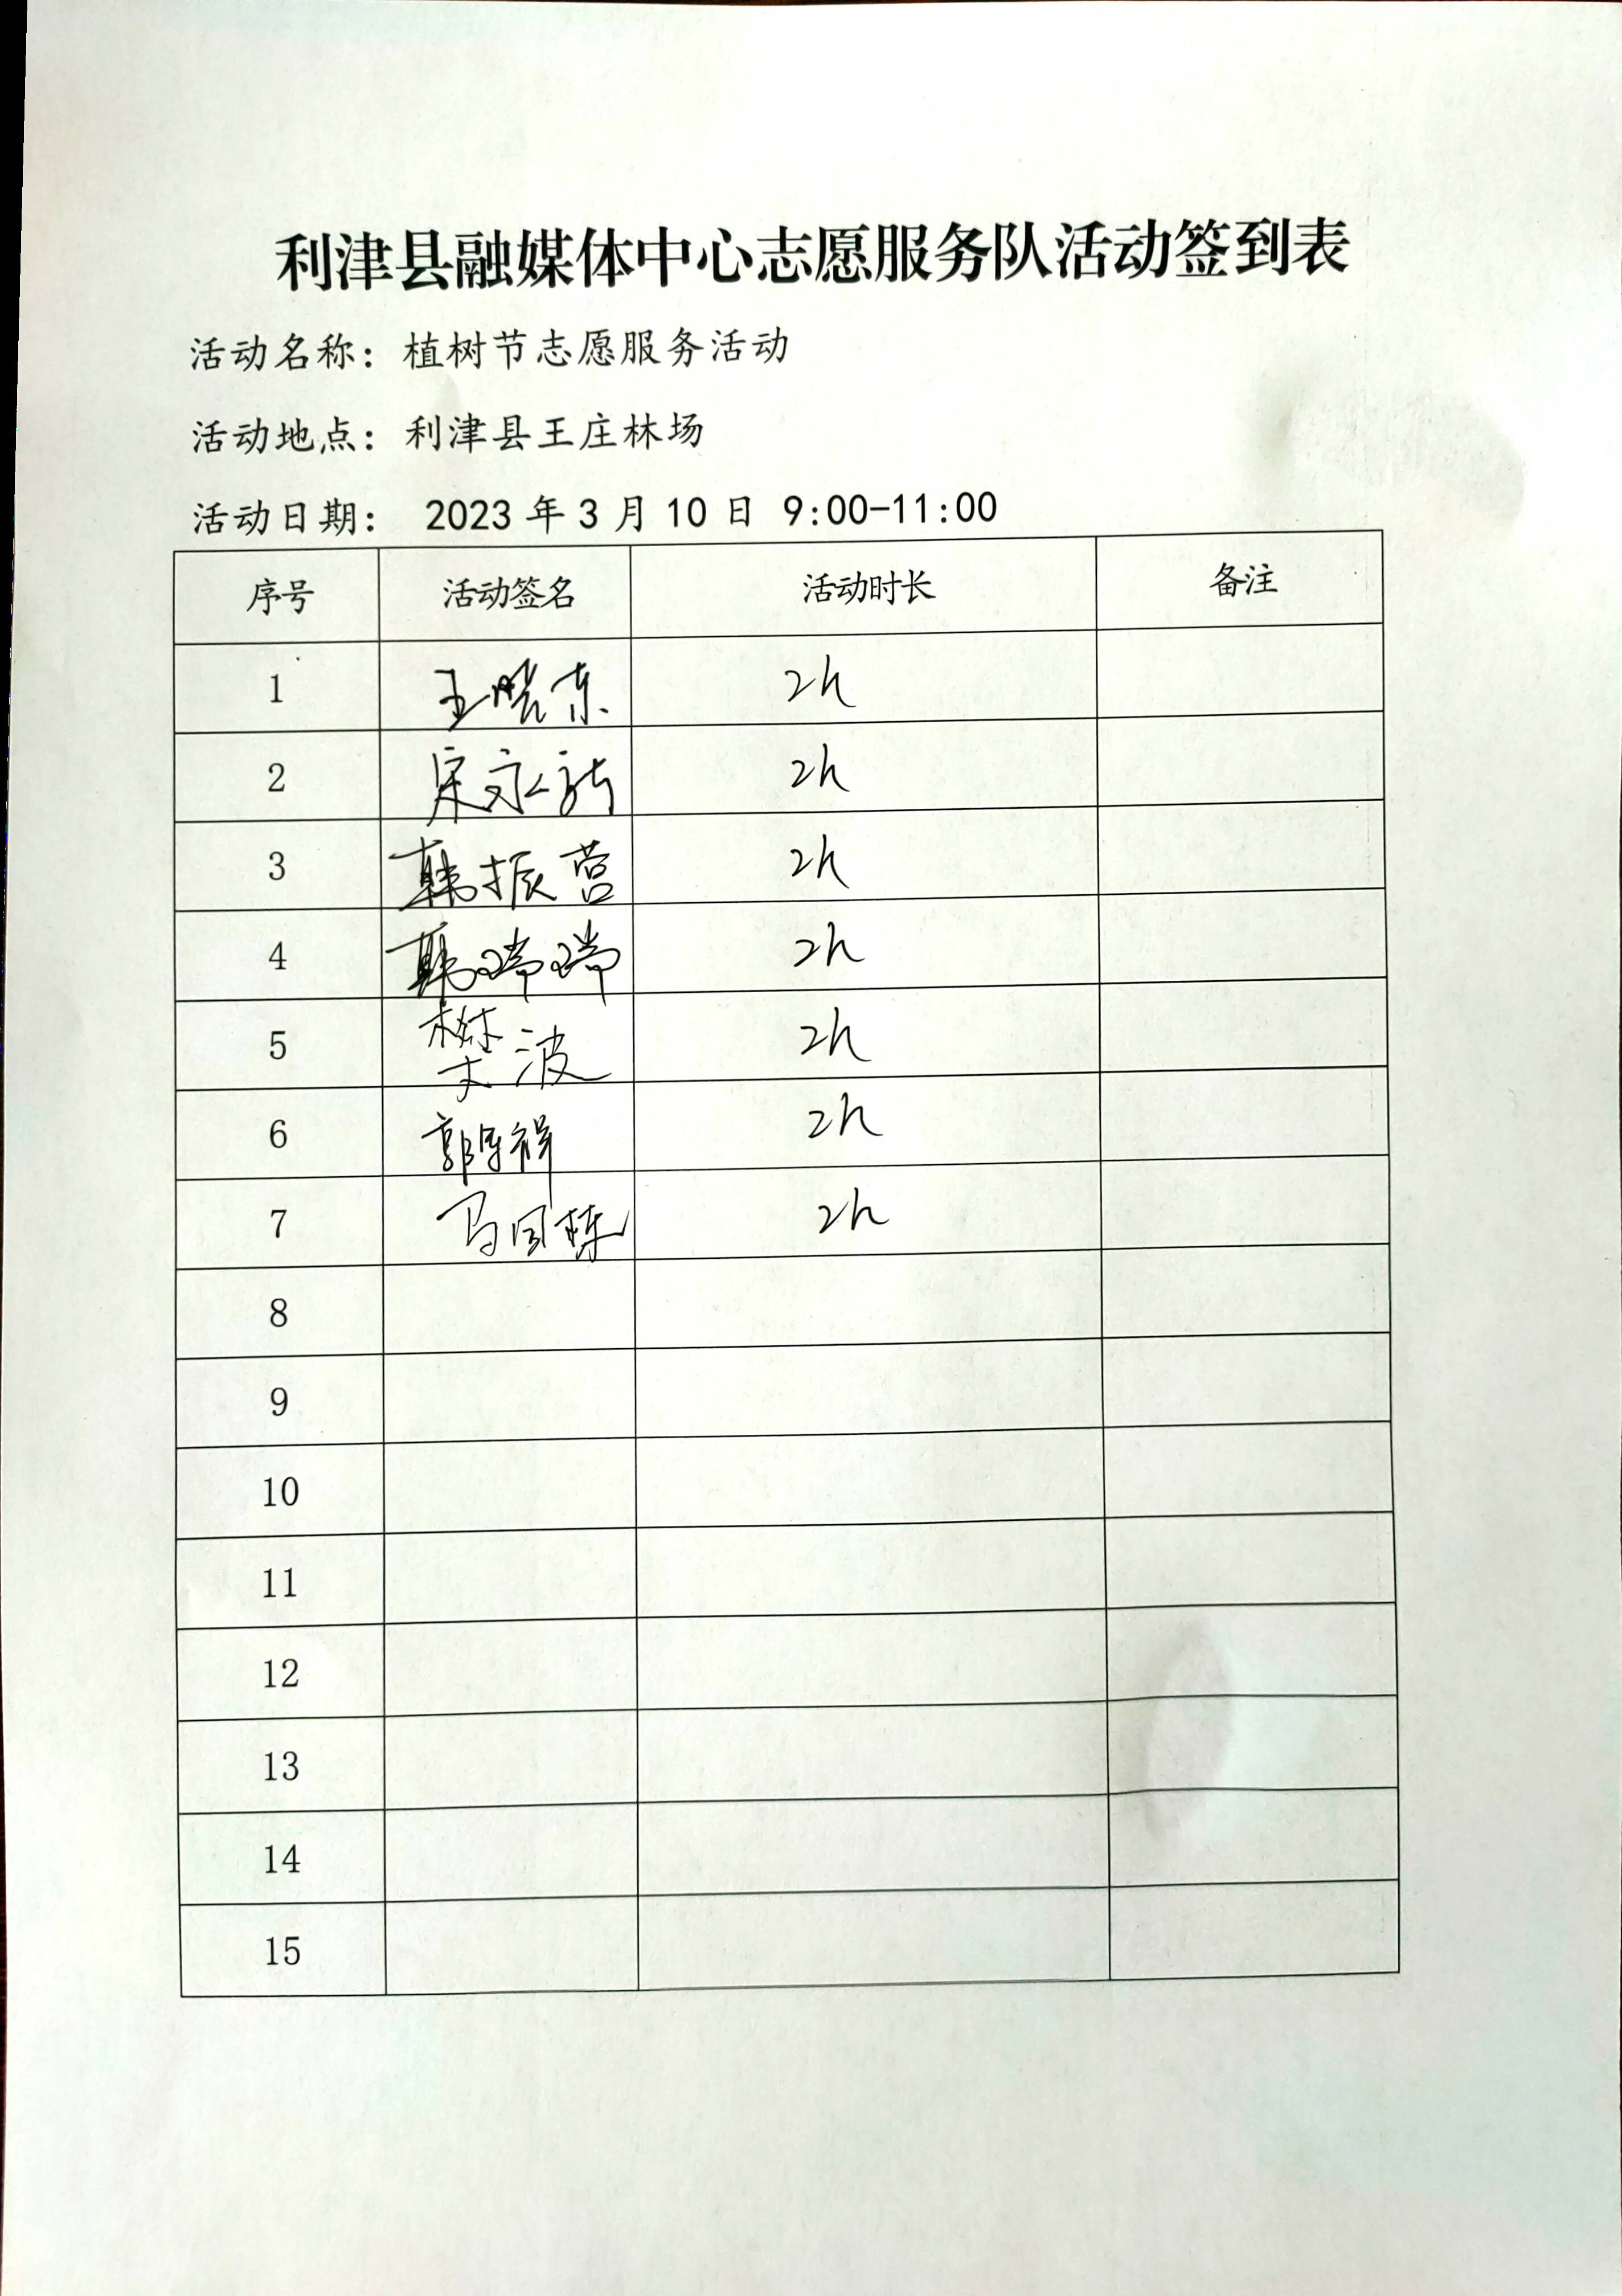 利津县融媒体中心志愿服务队活动签到表
活动名称：植树节志愿服务活动
活动地点：利津县王庄林场
活动日期： 2023 年 3 月 10 日 9:00-11:00
序号 活动签名 活动时长 备注
1 王晓东 2h
2 宋永新 2h
3 韩振营 2h
4 韩瑞瑞 2h
5 樊波 2h
6 郭祥 2h
7 马国栋 2h
8
9
10
11
12
13
14
15